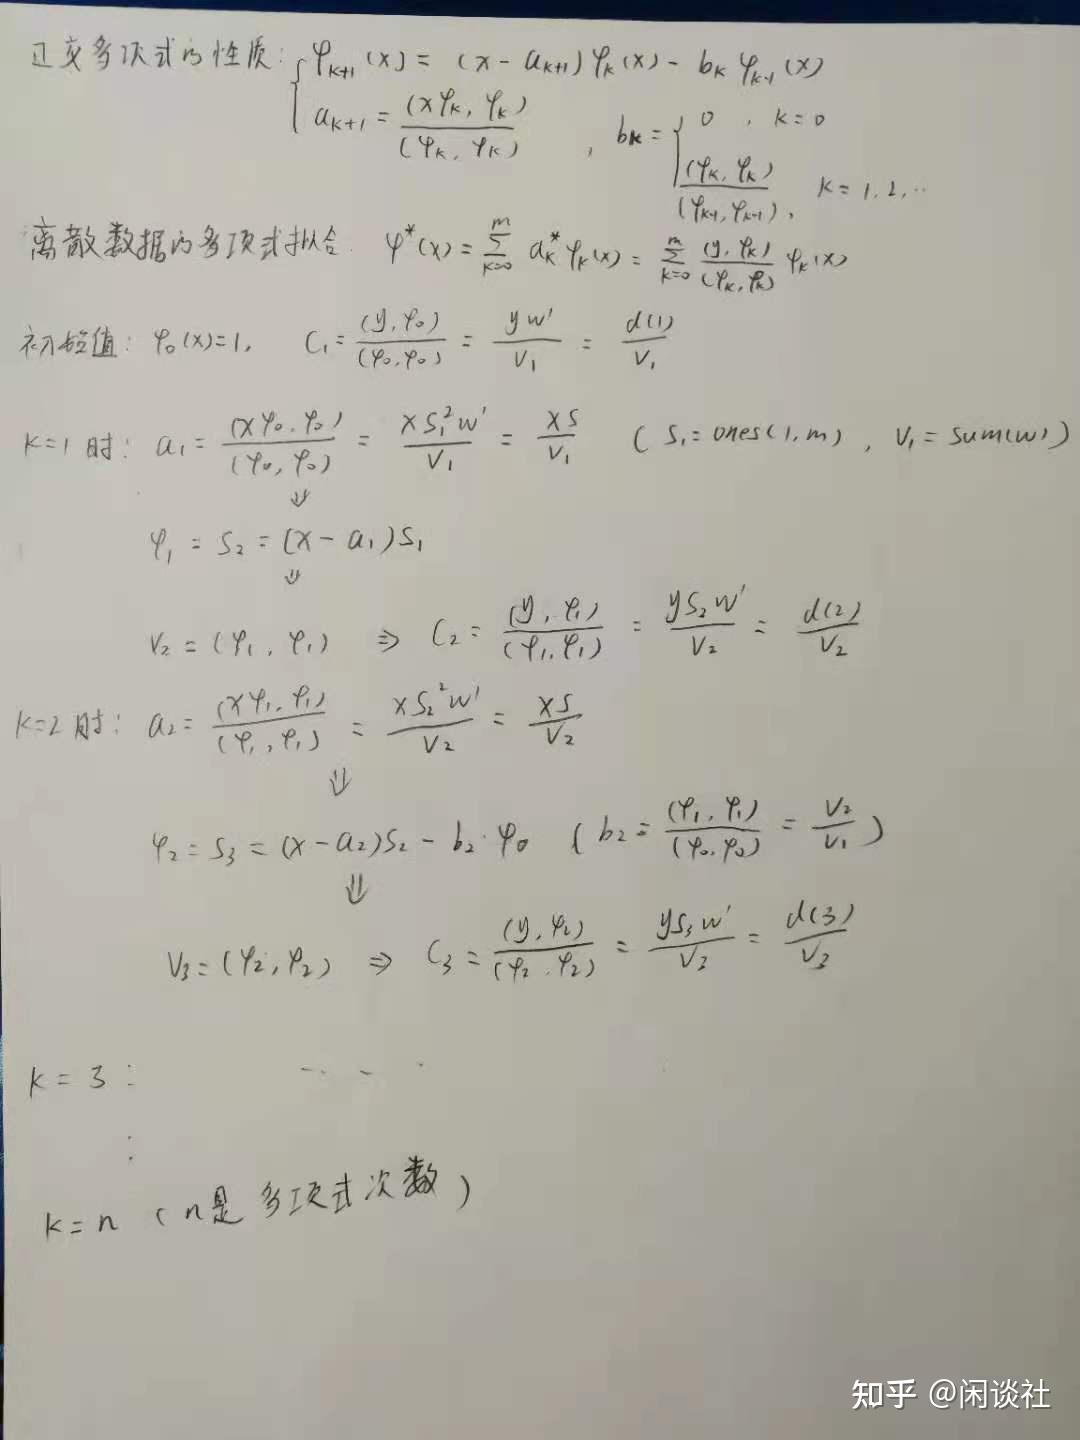 正交多项式的性质: { φ_{k+1}(x) = (x - a_{k+1}) φ_k(x) - b_k φ_{k-1}(x)
a_{k+1} = (xφ_k, φ_k) / (φ_k, φ_k) , b_k = { 0 , k=0
(φ_k, φ_k) / (φ_{k-1}, φ_{k-1}) , k = 1, 2, ...
离散数据的多项式拟合 φ*(x) = Σ_{k=0}^{m} a_k* φ_k(x) = Σ_{k=0}^{m} (y, φ_k) / (φ_k, φ_k) φ_k(x)
初始值: φ_0(x)=1, C_1 = (y, φ_0) / (φ_0, φ_0) = yw' / V_1 = d(1) / V_1
k=1时: a_1 = (xφ_0, φ_0) / (φ_0, φ_0) = xS_1^2w' / V_1 = xS / V_1 ( S_1 = ones(1, m) , V_1 = sum(w) )
⇓
φ_1 = S_2 = (x - a_1)S_1
⇓
V_2 = (φ_1, φ_1) ⇒ C_2 = (y, φ_1) / (φ_1, φ_1) = yS_2w' / V_2 = d(2) / V_2
k=2时: a_2 = (xφ_1, φ_1) / (φ_1, φ_1) = xS_2^2w' / V_2 = xS / V_2
⇓
φ_2 = S_3 = (x - a_2)S_2 - b_2·φ_0 ( b_2 = (φ_1, φ_1) / (φ_0, φ_0) = V_2 / V_1 )
⇓
V_3 = (φ_2, φ_2) ⇒ C_3 = (y, φ_2) / (φ_2, φ_2) = yS_3w' / V_3 = d(3) / V_3
k = 3 : ...
⋮
k = n ( n是多项式次数 )
知乎 @闲谈社